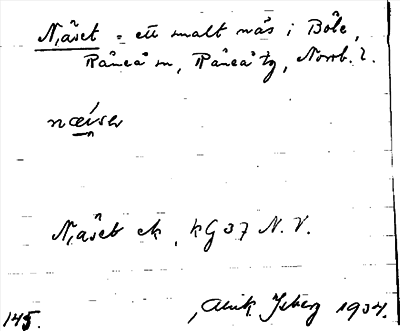 Näset = ett smalt näs i Böle,
Råneå sn, Råneå tg, Norrb. l.
Näset ek, kG 37 N.V.
145. Alrik Isberg 1934.